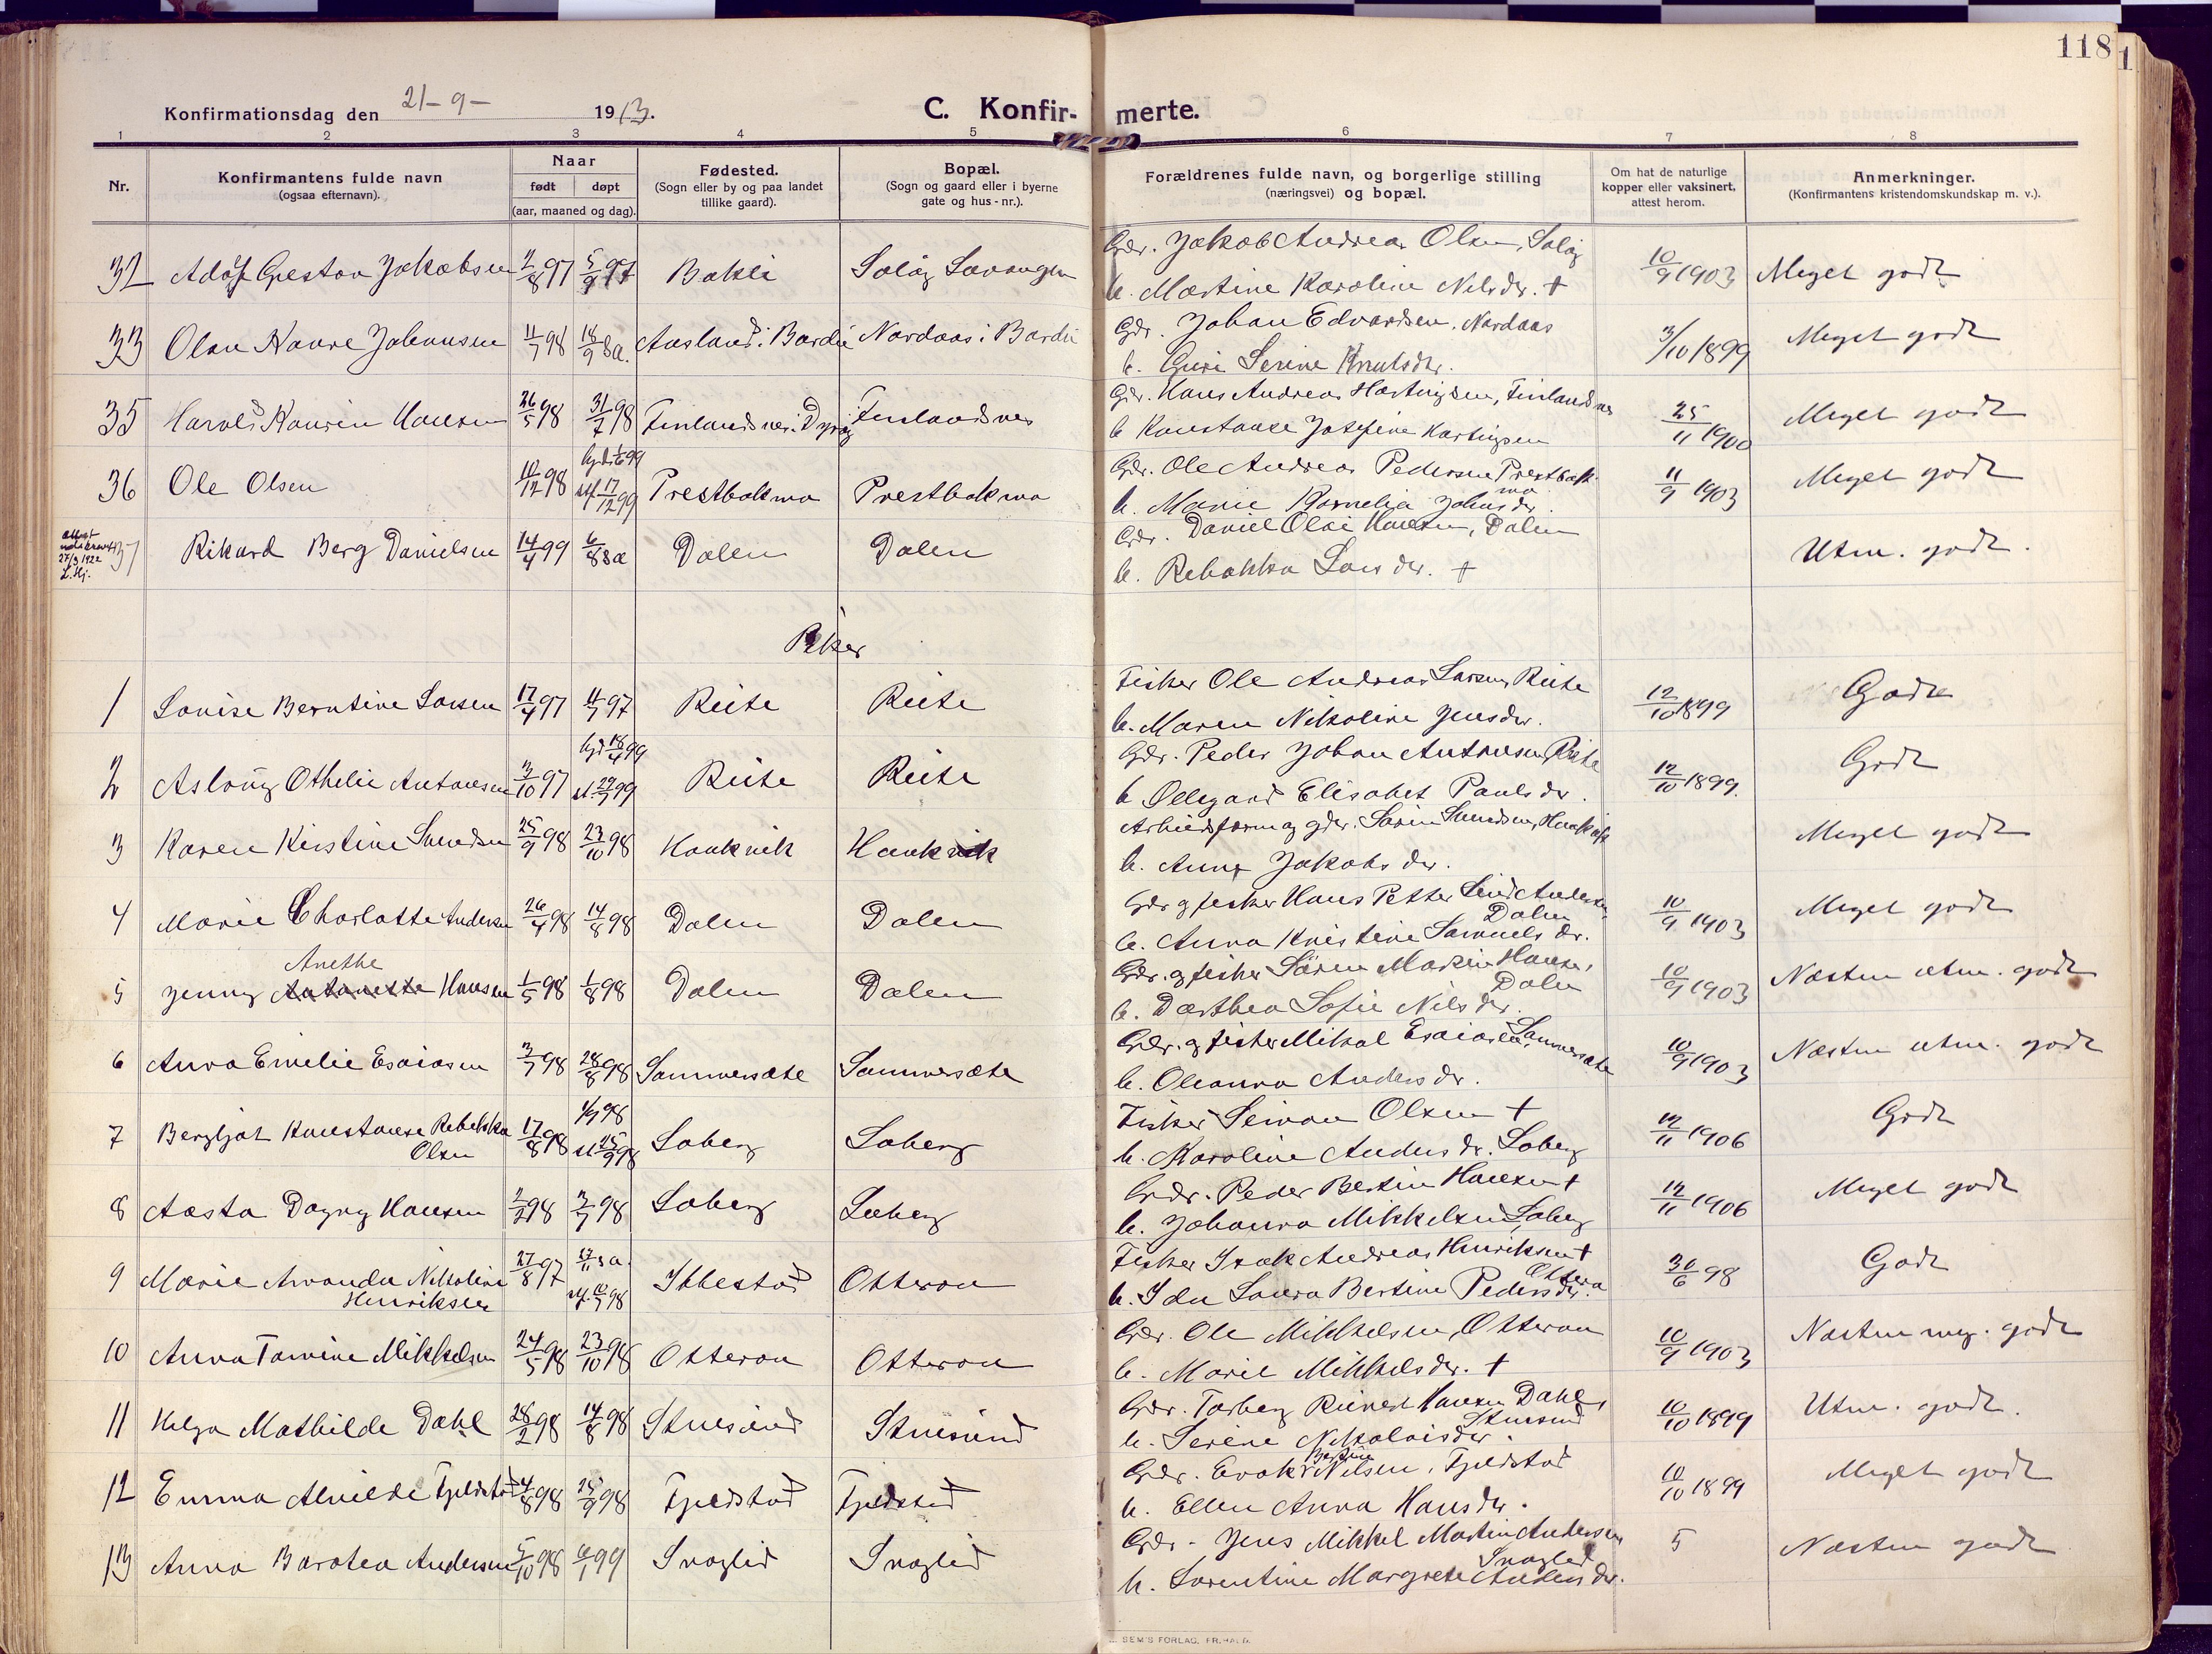 118
1
Konfirmationsdag den 21-9- 1913.
C. Konfirmerte.
1 2 3 4 5 6 7 8
Nr.
Konfirmantens fulde navn
(ogsaa efternavn).
Naar
født døpt
(aar, maaned og dag).
Fødested.
(Sogn eller by og paa landet
tillike gaard).
Bopæl.
(Sogn og gaard eller i byerne
gate og hus-nr.).
Forældrenes fulde navn, og borgerlige stilling
(næringsvei) og bopæl.
Om hat de naturlige
kopper eller vaksinert,
attest herom.
Anmerkninger.
(Konfirmantens kristendomskundskap m. v.).
Gdr. Jakob Andreas Olsen, Soløy
32 Adolf Gustav Jakobsen 2/8 97 5/9 97 Bakli Soløy Lavangen 10/9 1903 Meget godt
h. Martine Karoline Nilsdr. +
Gdr. Johan Edvardsen. Nordaas
33 Olav Kaare Johansen 11/7 98 18/9 s.a. Aasland i Bardu Nordaas i Bardu 3/10 1899 Meget godt
h. Guri Serine Knutsdr.
Gdr. Hans Andreas Hartvigsen, Finlandsnes
35 Harald Kaurin Hansen 26/5 98 31/7 98 Finlandsnes i Dyrøy Finlandsnes 25/11 1900 Meget godt
h Konstanse Josefine Hartvigsen
Gdr. Ole Andreas Pedersen Prestbak
36 Ole Olsen 10/12 98 hjd. 1/6 99 stf. 17/12 99 Prestbakmo Prestbakmo 11/9 1903 Meget godt
mo
h. Marie Kornelia Johnsdr.
Gdr. Daniel Olai Hansen, Dalen
attest
utskrevet
27/3 1922
L.Hj.
37 Rikard Berg Danielsen 14/4 99 6/8 s.a Dalen Dalen Utm. godt.
h. Rebekka Larsdr. +
Piker
Fisker Ole Andreas Larsen, Reite
1 Lovise Berntine Larsen 17/4 97 11/7 97 Reite Reite 12/10 1899 Godt
h. Maren Nikoline Jensdr.
Gdr. Peder Johan Antonsen, Reite
2 Aslaug Othelie Antonsen 3/10 97 hjd 18/4 99 st 29/7 99 Reite Reite 12/10 1899. Godt
h Ollegard Elisabet Paulsdr.
Arbeidsform. og gdr. Sørin Svendsen, Haukvik
3 Karen Kirstine Svendsen 25/9 98 23/10 98 Haukvik Haukvik Meget godt
h. Anna Jakobsdr.
Gdr og fisker Hans Petter Lund Andersen,
4 Marie Charlotte Andersen 26/4 98 14/8 98 Dalen Dalen 10/9 1903 Meget godt
Dalen
h. Anna Kristine Samuelsdr.
Gdr. og fisker Søren Martin Hansen,
Anethe
5 Jenny Antonette Hansen 1/5 98 1/8 98 Dalen Dalen 10/9 1903 Næsten utm. godt
Dalen
h. Dorthea Sofie Nilsdr.
Gdr. og fisker Mikal Esaiasen, Sommersæte
6 Anna Emelie Esaiasen 3/7 98 28/8 98 Sommersæte Sommersæte 10/9 1903 Næsten utm. godt
h. Oleanna Andersdr.
Fisker Simon Olsen +
7 Bergljot Konstanse Rebekka 17/8 98 1/9 98 st 25/9 98 Løberg Løberg 12/11 1906 Godt
Olsen
h. Karoline Andersdr. Løberg
Gdr. Peder Bertin Hansen +
8 Aasta Dagny Hansen 2/2 98 3/7 98 Løberg Løberg 12/11 1906 Meget godt
h. Johanna Mikkelsen, Løberg
Fisker Isak Andreas Henriksen +
9 Marie Amanda Nikoline 27/8 97 27/11 s.a. stf. 10/7 98 Ibbestad Otteraa 30/6 98 Godt
Henriksen
Otteraa
h. Ida Laura Bertine Pedersdr.
Gdr. Ole Mikkelsen, Otteraa
10 Anna Tomine Mikkelsen 24/5 98 23/10 98 Otteraa Otteraa 10/9 1903 Næsten meg. godt
h. Marie Mikkelsdr. +
Gdr. Torberg Reinert Hansen Dahl,
11 Helga Mathilde Dahl 28/2 98 14/8 98 Stuesund Stuesund 10/10 1899 Utm. godt.
Stuesund
h. Serine Nikolaisdr.
Gdr. Enok Bertin Nilsen, Fjeldstad
12 Emma Alvilde Fjeldstad 4/8 98 25/9 98 Fjeldstad Fjeldstad 10/10 1899 Meget godt
h. Ellen Anna Hansdr.
Gdr. Jens Mikkel Martin Andersen
13 Anna Barotea Andersen 5/10 98 6/1 99 Snoglid Snoglid 5 Næsten godt
Snoglid
h. Lorentine Margrete Andersdr.
SEM'S FORLAG, FR.HALD.